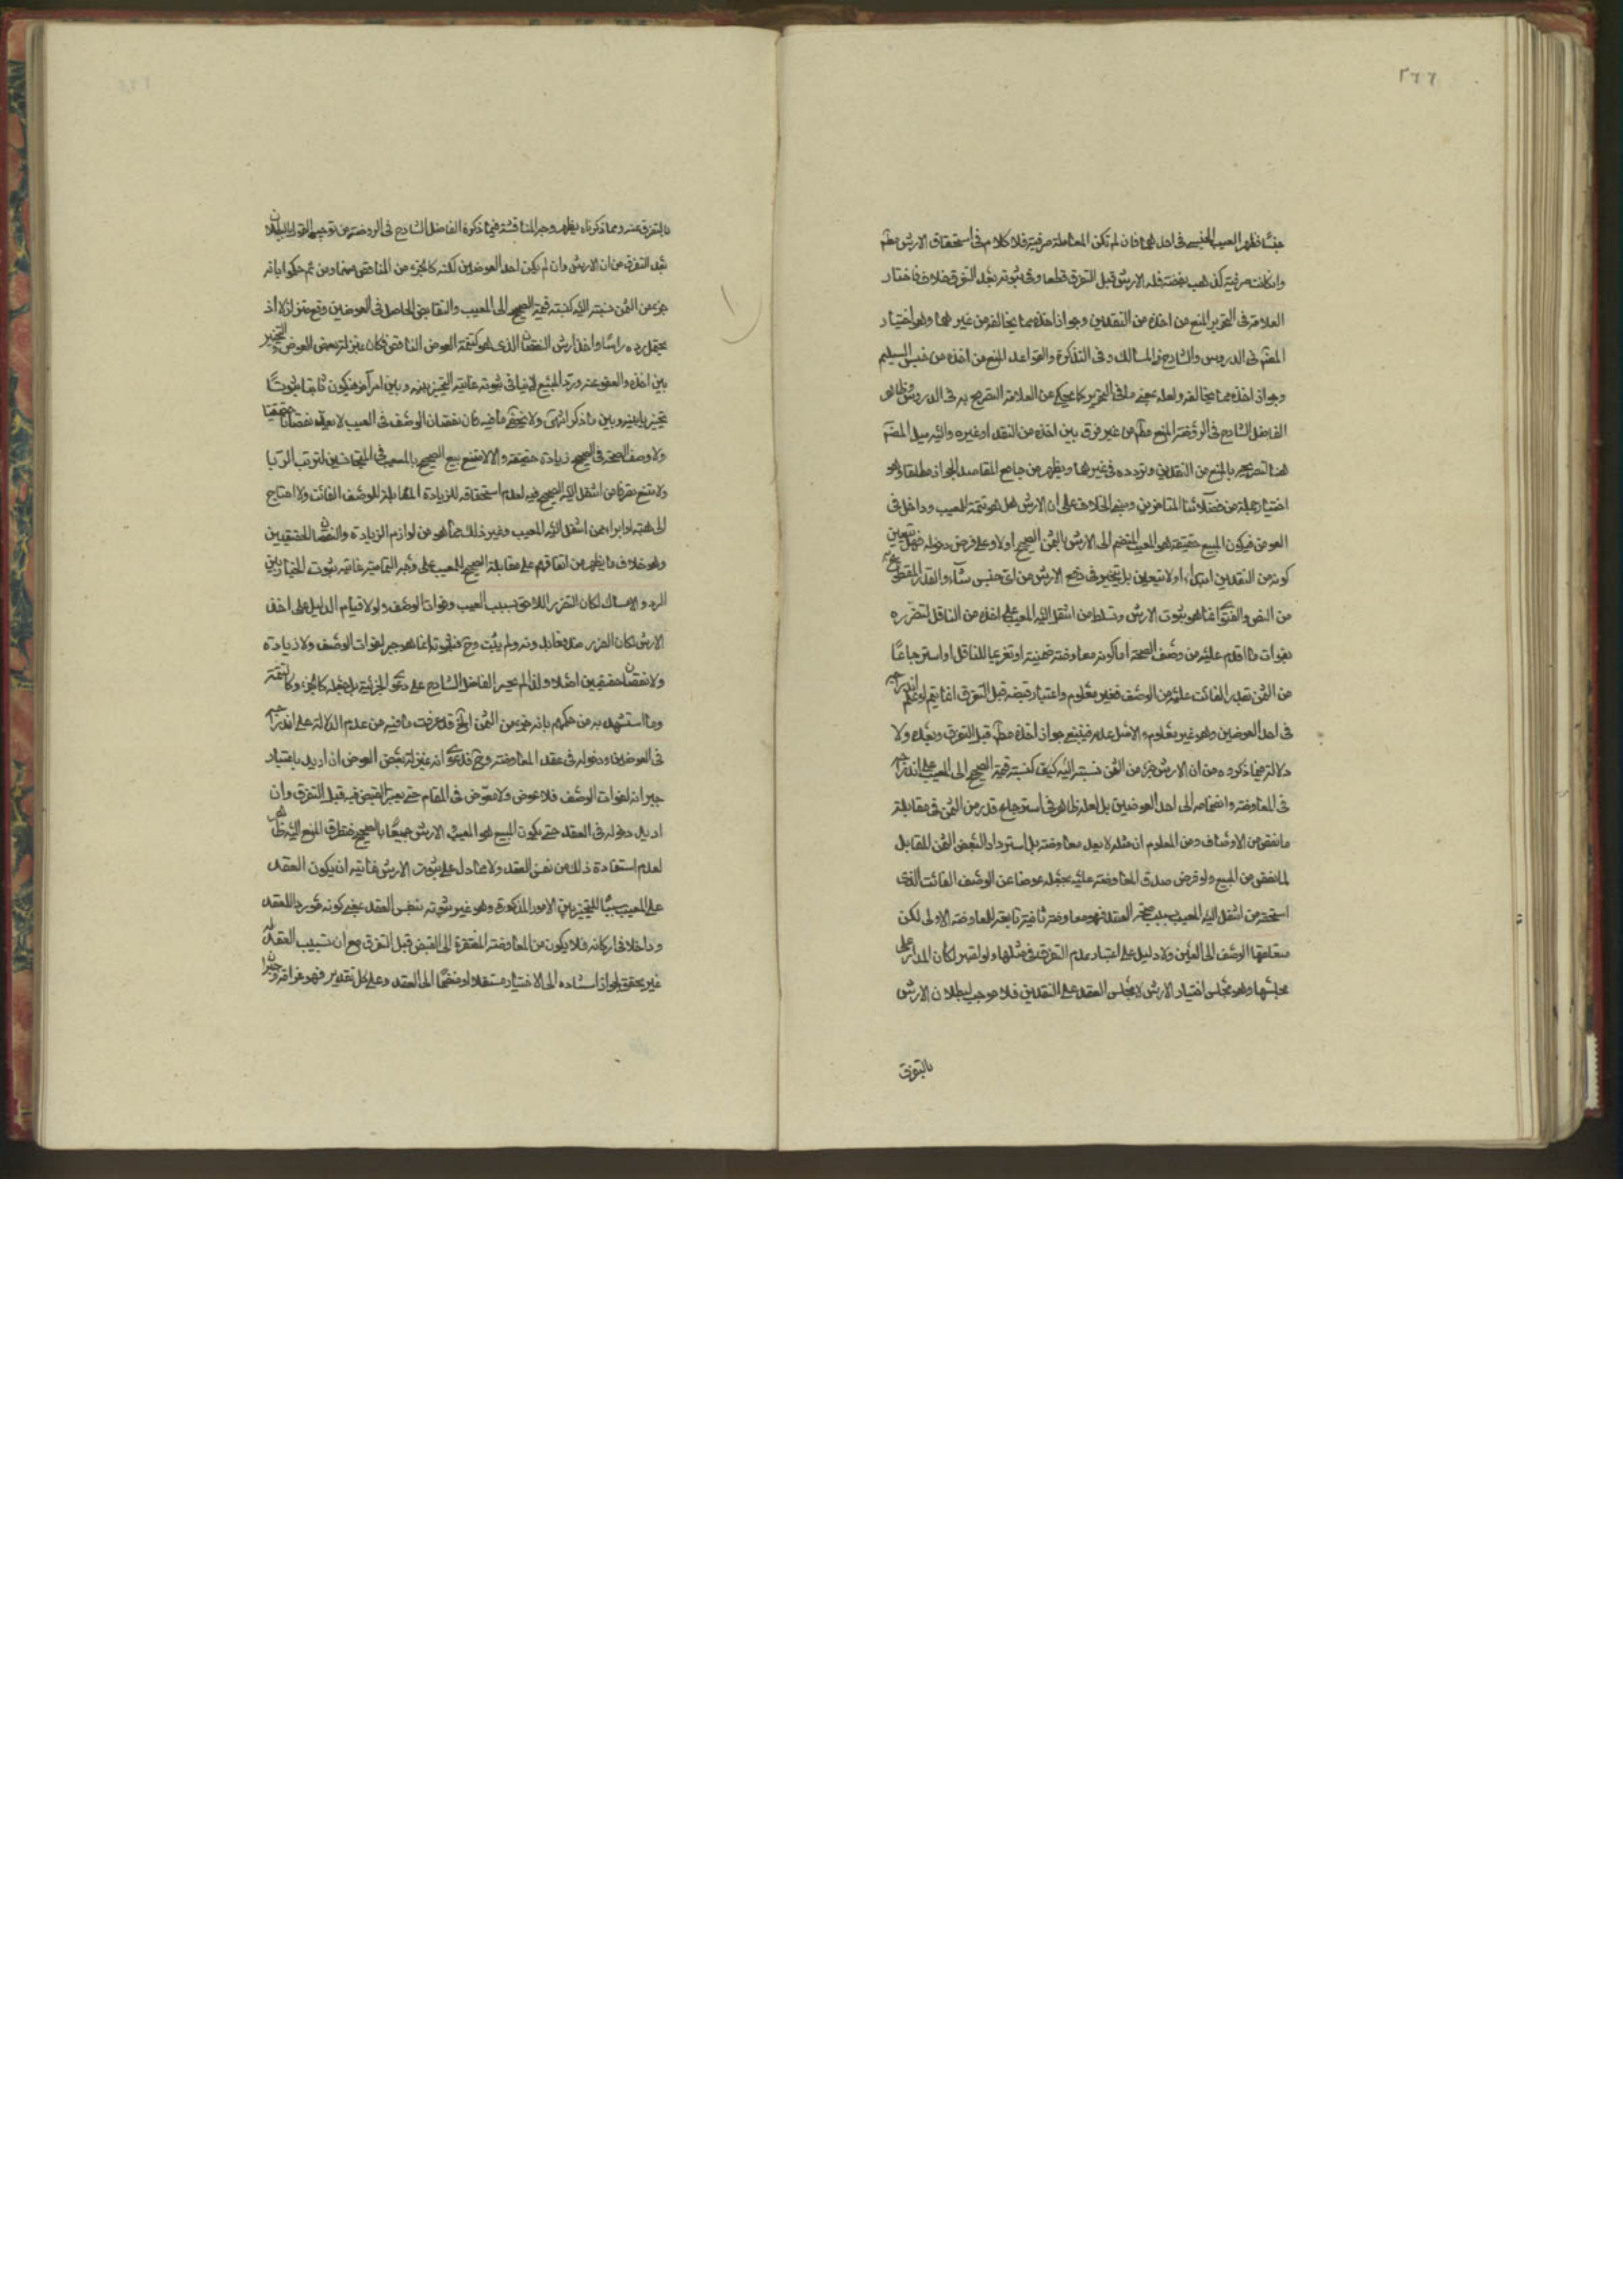 ٢٦٦
جنسًا فظهر العيب الجنسى فى احدهما فان لم تكن المعاملة صرفية فلا كلام فى استحقاق الارش مطم
وان كانت صرفية كذهب بفضة فله الارش قبل التفرق قطعا وفى ثبوته بعد التفرق خلاف فاختار
العلامة فى التحرير المنع من اخذه من النقدين وجواز اخذه مما يخالفه من غيرهما وهو اختيار
المصم فى الدروس والشارح فى المسالك وفى التذكرة والقواعد المنع من اخذه من جنس السليم
وجواز اخذه مما يخالفه ولعله بمعنى ما فى التحرير كما يحكى عن العلامة التصريح به فى الدروس وظاهر
الفاضل الشارح فى الروضة المنع مطم من غير فرق بين اخذه من النقد او غيره واليه ميل المصم
هنا لتصريحه بالمنع من النقدين وتردده فى غيرهما ويظهر من جامع المقاصد الجواز مطلقا وهو
اختيار جملة من فضلائنا المتاخرين ومبنى الخلاف على ان الارش هل هو تتمة المعيب وداخل فى
العوض فيكون المبيع حقيقة هو المعيب المنضم الى الارش بالثمن الصحيح اولا وعلى فرض دخوله فهل يتعين
كونه من النقدين ابتداء او لا يتعين بل يتخير فى دفع الارش من اى جنس شاء والقدر المقطوع به
من النص والفتوى انما هو ثبوت الارش وتسلط من انتقل اليه المعيب على اخذه من الناقل لتضرره
بفوات ما اقدم عليه من وصف الصحة اما كونه معاوضة ضمنية او تغريما للناقل او استرجاعًا
من الثمن بقدر الفائت عليه من الوصف فغير معلوم واعتبار قبضه قبل التفرق انما يتم لو علم اندراجه
فى احد العوضين وهو غير معلوم والاصل عدمه فينبغى جواز اخذه مطم قبل التفرق وبعده ولا
دلالة فيما ذكروه من ان الارش جزء من الثمن نسبته اليه كنسبة قيمة الصحيح الى المعيب على اندراجه
فى المعاوضة وانضمامه الى احد العوضين بل لعله ظاهر فى استرجاع قدر من الثمن فى مقابلة
ما نقص من الاوصاف ومن المعلوم ان مثله لا يعد معاوضة بل استرداد البعض الثمن المقابل
لما نقص من المبيع ولو فرض صدق المعاوضة عليه بجعله عوضا عن الوصف الفائت الذى
استحقه من انتقل اليه المعيب بسبب صحة العقد فهو معاوضة ثانية تابعة للمعاوضة الاولى لكن
متعلقها الوصف لا العين ولا دليل على اعتبار عدم التفرق فى مثلها ولو اعتبر لكان المدار على
مجلسها وهو مجلس اختيار الارش لا مجلس العقد على النقدين فلا موجب لبطلان الارش
بالتفرق
بالتفرق عنه ومما ذكرناه يظهر وجه المناقشة فيما ذكره الفاضل الشارح فى الروضة من توجيه القول بالبطلان
بعد التفرق من ان الارش وان لم يكن احد العوضين لكنه كالجزء من الناقص منهما ومن ثم حكموا بانه
جزء من الثمن نسبته اليه كنسبة قيمة الصحيح الى المعيب والتقابض الحاصل فى العوضين وقع متزلزلا اذ
يحتمل رده راسًا واخذ ارش النقصان الذى هو كتتمة العوض الناقص فكان بمنزلة بعض العوض والتخيير
بين اخذه والعفو عنه ورد المبيع لا ينافى ثبوته غايته التخيير بينه وبين امر آخر فيكون ثابتا ثبوتًا
تخييريا بينه وبين ما ذكر انتهى ولا يخفى ما فيه فان نقصان الوصف فى المعيب لا يعد نقصانا حقيقيا
ولا وصف الصحة فى الصحيح زيادة حقيقة والا لامتنع بيع الصحيح بالمعيب فى المتجانسين لترتب الربا
ولامتنع تصرف من انتقل اليه الصحيح فيه لعدم استحقاقه للزيادة المقابلة للوصف الفائت ولاحتاج
الى هبة او ابراء ممن انتقل اليه المعيب وغير ذلك مما هو من لوازم الزيادة والنقصان الحقيقيين
وهو خلاف ما يظهر من اتفاقهم على مقابلة الصحيح للمعيب على وجه التمامية غايته ثبوت الخيار بين
الرد والامساك لمكان الضرر اللاحق بسبب العيب وفوات الوصف ولولا قيام الدليل على اخذ
الارش لكان الضرر منفيا بدونه ولم يثبت وح فثبوته انما هو جبر لفوات الوصف ولا زيادة
ولا نقصان حقيقيين اصلا ولذا لم يجسر الفاضل الشارح على دعوى الجزئية بل جعله كالجزء وكالتتمة
وما استشهد به من حكمهم بانه جزء من الثمن الخ قد عرفت ما فيه من عدم الدلالة على اندراجه
فى العوضين ودخوله فى عقد المعاوضة وح فدعوى انه بمنزلة بعض العوض ان اريد باعتبار
جبرانه لفوات الوصف فلا عوض ولا معوض فى المقام حتى يعتبر القبض فيه قبل التفرق وان
اريد دخوله فى العقد حتى يكون المبيع هو المعيب والارش جميعًا بالصحيح فتطرق المنع اليه ظاهر
لعدم استفادة ذلك من نفس العقد ولا مما دل على ثبوت الارش فغايته ان يكون العقد
على المعيب سببًا للتخيير بين الامور المذكورة وهو غير ثبوته بنفس العقد بمعنى كونه موردا للعقد
وداخلا فى اركانه فلا يكون من المعاوضة المفتقرة الى القبض قبل التفرق مع ان تسبيب العقد له
غير متحقق لجواز استناده الى الاختيار مستقلا او منضمًا الى العقد وعلى كل تقدير فهو غرامة وجبران